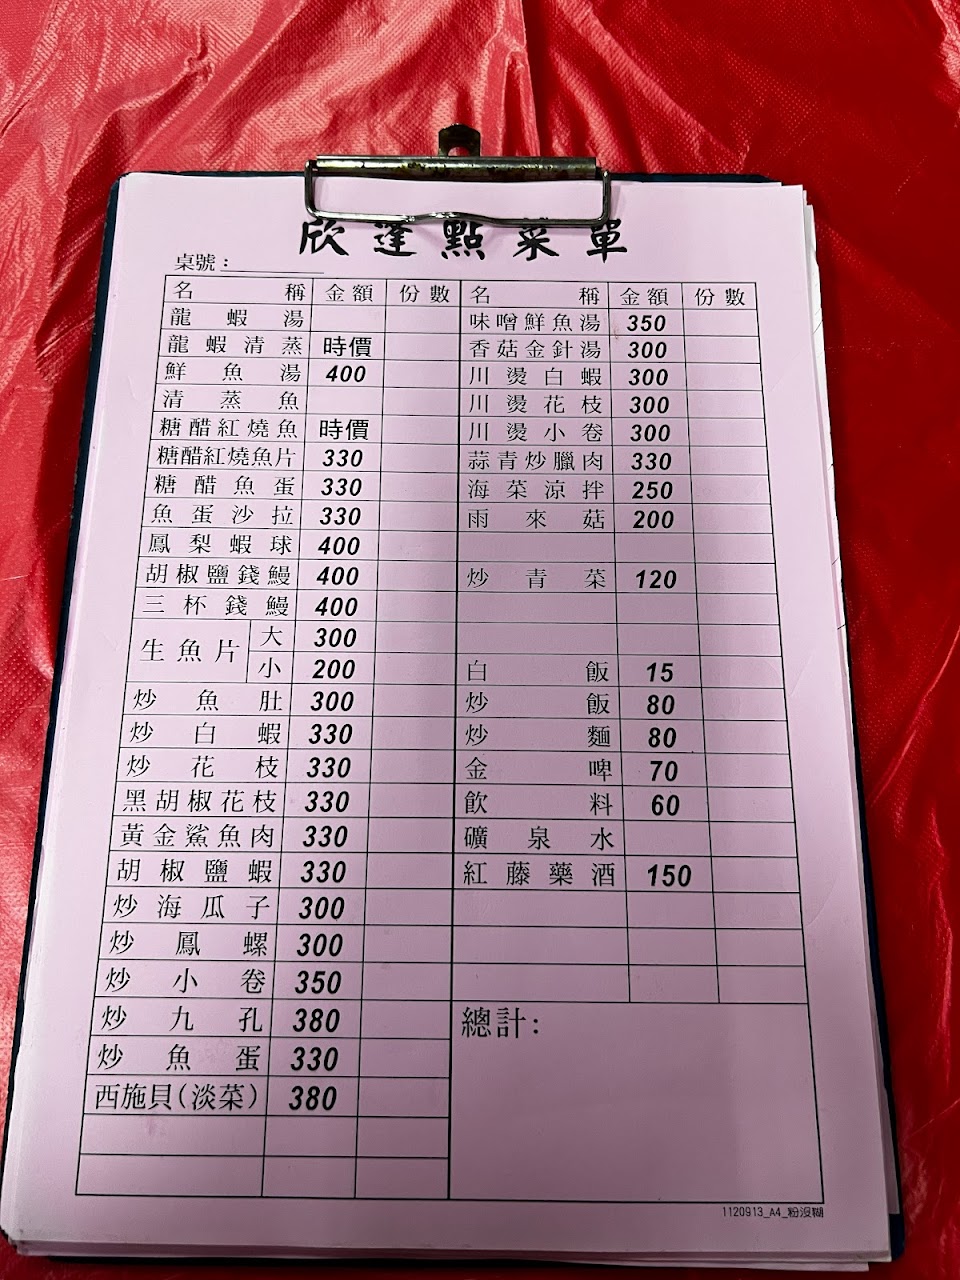 欣逢點菜單
桌號：
名稱 金額 份數
龍蝦湯
龍蝦清蒸 時價
鮮魚湯 400
清蒸魚
糖醋紅燒魚 時價
糖醋紅燒魚片 330
糖醋魚蛋 330
魚蛋沙拉 330
鳳梨蝦球 400
胡椒鹽錢鰻 400
三杯錢鰻 400
生魚片 大 300
小 200
炒魚肚 300
炒白蝦 330
炒花枝 330
黑胡椒花枝 330
黃金鯊魚肉 330
胡椒鹽蝦 330
炒海瓜子 300
炒鳳螺 300
炒小卷 350
炒九孔 380
炒魚蛋 330
西施貝(淡菜) 380
名稱 金額 份數
味噌鮮魚湯 350
香菇金針湯 300
川燙白蝦 300
川燙花枝 300
川燙小卷 300
蒜青炒臘肉 330
海菜涼拌 250
雨來菇 200
炒青菜 120
白飯 15
炒飯 80
炒麵 80
金啤 70
飲料 60
礦泉水
紅藤藥酒 150
總計：
1120913_A4_粉沒糊